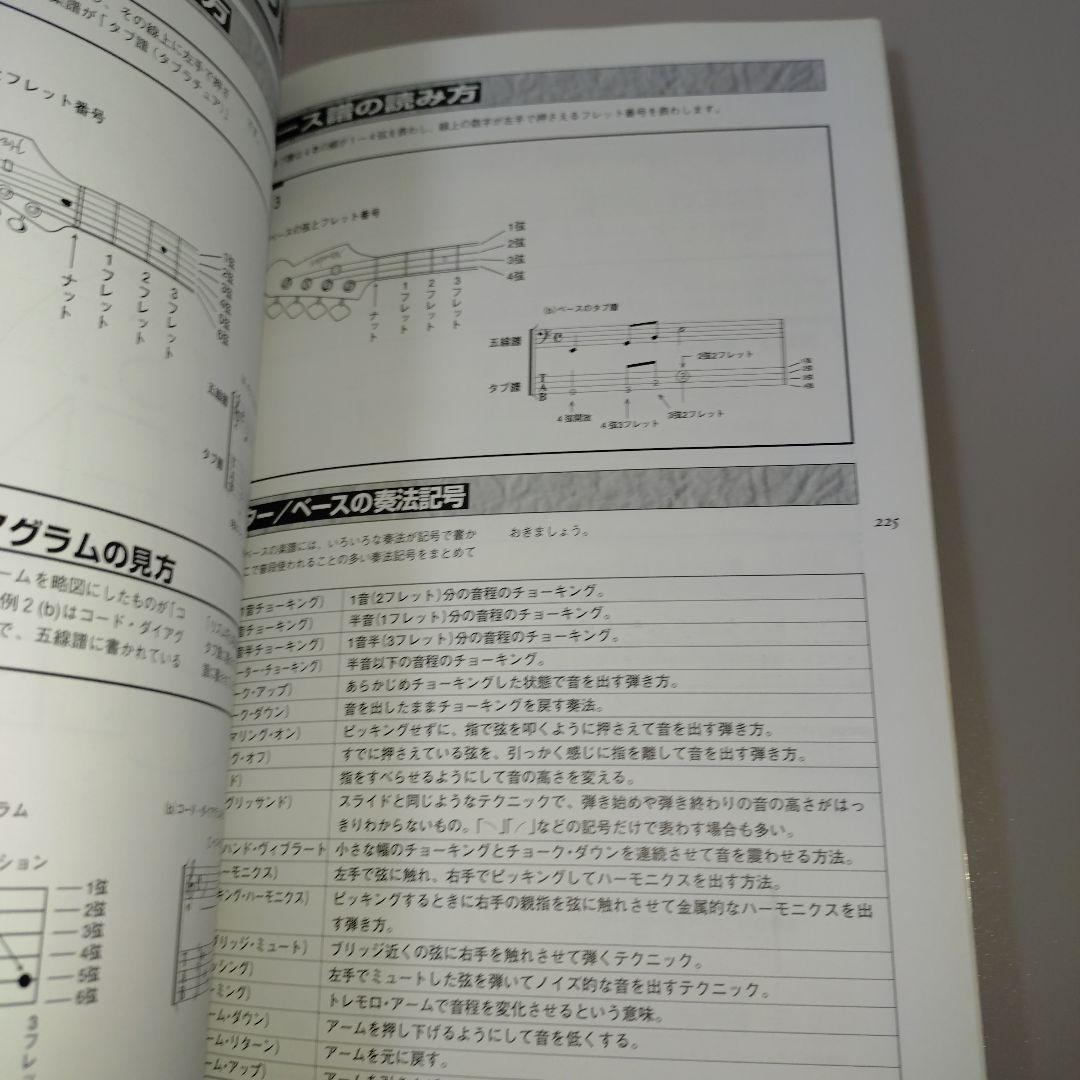 方
、その線上に左手で押さ
譜が「タブ譜(タブラチュア)」
フレット番号
ナット
1フレット
2フレット
3フレット
1弦
2弦
3弦
4弦
5弦
6弦
五線譜
タブ譜
グラムの見方
ームを略図にしたものが「コ
例2(b)はコード・ダイアグ
で、五線譜に書かれている
ラム
ション
1弦
2弦
3弦
4弦
5弦
6弦
ース譜の読み方
譜は4本の線が1〜4弦を表わし、線上の数字が左手で押さえるフレット番号を表わします。
3
ベースの弦とフレット番号
1弦
2弦
3弦
4弦
ナット
1フレット
2フレット
3フレット
(b)ベースのタブ譜
五線譜
タブ譜
TAB
0
3
2
2
2弦2フレット
4弦開放
4弦3フレット
3弦2フレット
1弦
2弦
3弦
4弦
ター/ベースの奏法記号
225
ベースの楽譜には、いろいろな奏法が記号で書か
こで普段使われることの多い奏法記号をまとめて
おきましょう。
1音チョーキング) 1音(2フレット)分の音程のチョーキング。
音チョーキング) 半音(1フレット)分の音程のチョーキング。
音半チョーキング) 1音半(3フレット)分の音程のチョーキング。
ーター・チョーキング) 半音以下の音程のチョーキング。
ーク・アップ) あらかじめチョーキングした状態で音を出す弾き方。
ーク・ダウン) 音を出したままチョーキングを戻す奏法。
マリング・オン) ピッキングせずに、指で弦を叩くように押さえて音を出す弾き方。
グ・オフ) すでに押さえている弦を、引っかく感じに指を離して音を出す弾き方。
ド) 指をすべらせるようにして音の高さを変える。
グリッサンド) スライドと同じようなテクニックで、弾き始めや弾き終わりの音の高さがはっ
きりわからないもの。「﹨」「/」などの記号だけで表わす場合も多い。
ハンド・ヴィブラート 小さな幅のチョーキングとチョーク・ダウンを連続させて音を震わせる方法。
ーモニクス) 左手で弦に触れ、右手でピッキングしてハーモニクスを出す方法。
キング・ハーモニクス) ピッキングするときに右手の親指を弦に触れさせて金属的なハーモニクスを出
す弾き方。
ブリッジ・ミュート) ブリッジ近くの弦に右手を触れさせて弾くテクニック。
ッシング) 左手でミュートした弦を弾いてノイズ的な音を出すテクニック。
ーミング) トレモロ・アームで音程を変化させるという意味。
ーム・ダウン) アームを押し下げるようにして音を低くする。
ーム・リターン) アームを元に戻す。
ーム・アップ)